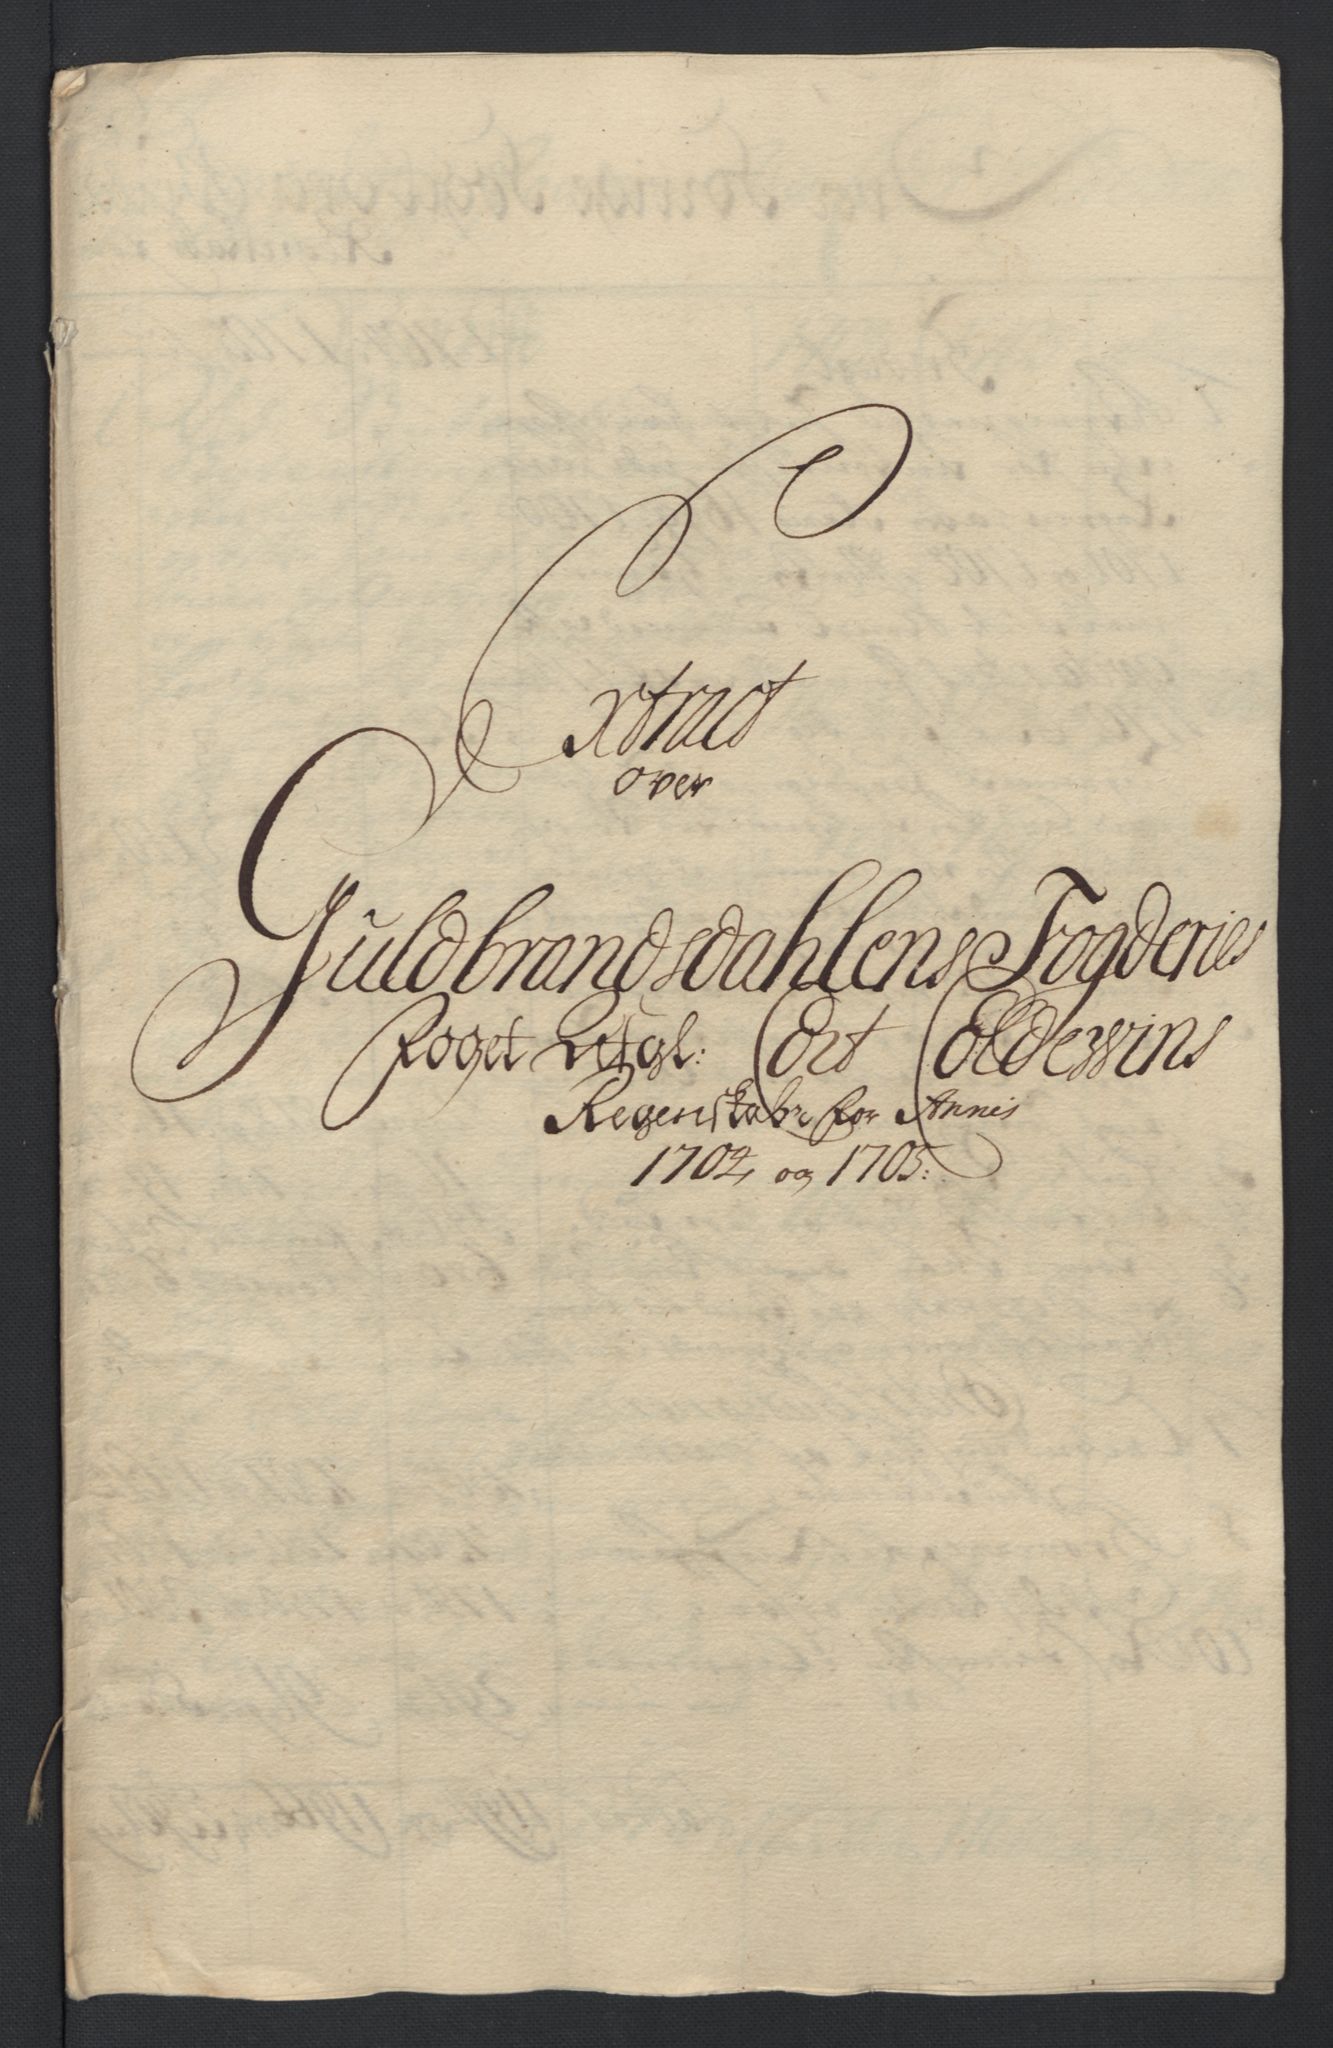 Extract
over
Guldbrandsdahlens Fogderies
foget Sigl: Ort Eldessins
Regenskabr for Annis
1704 og 1705: